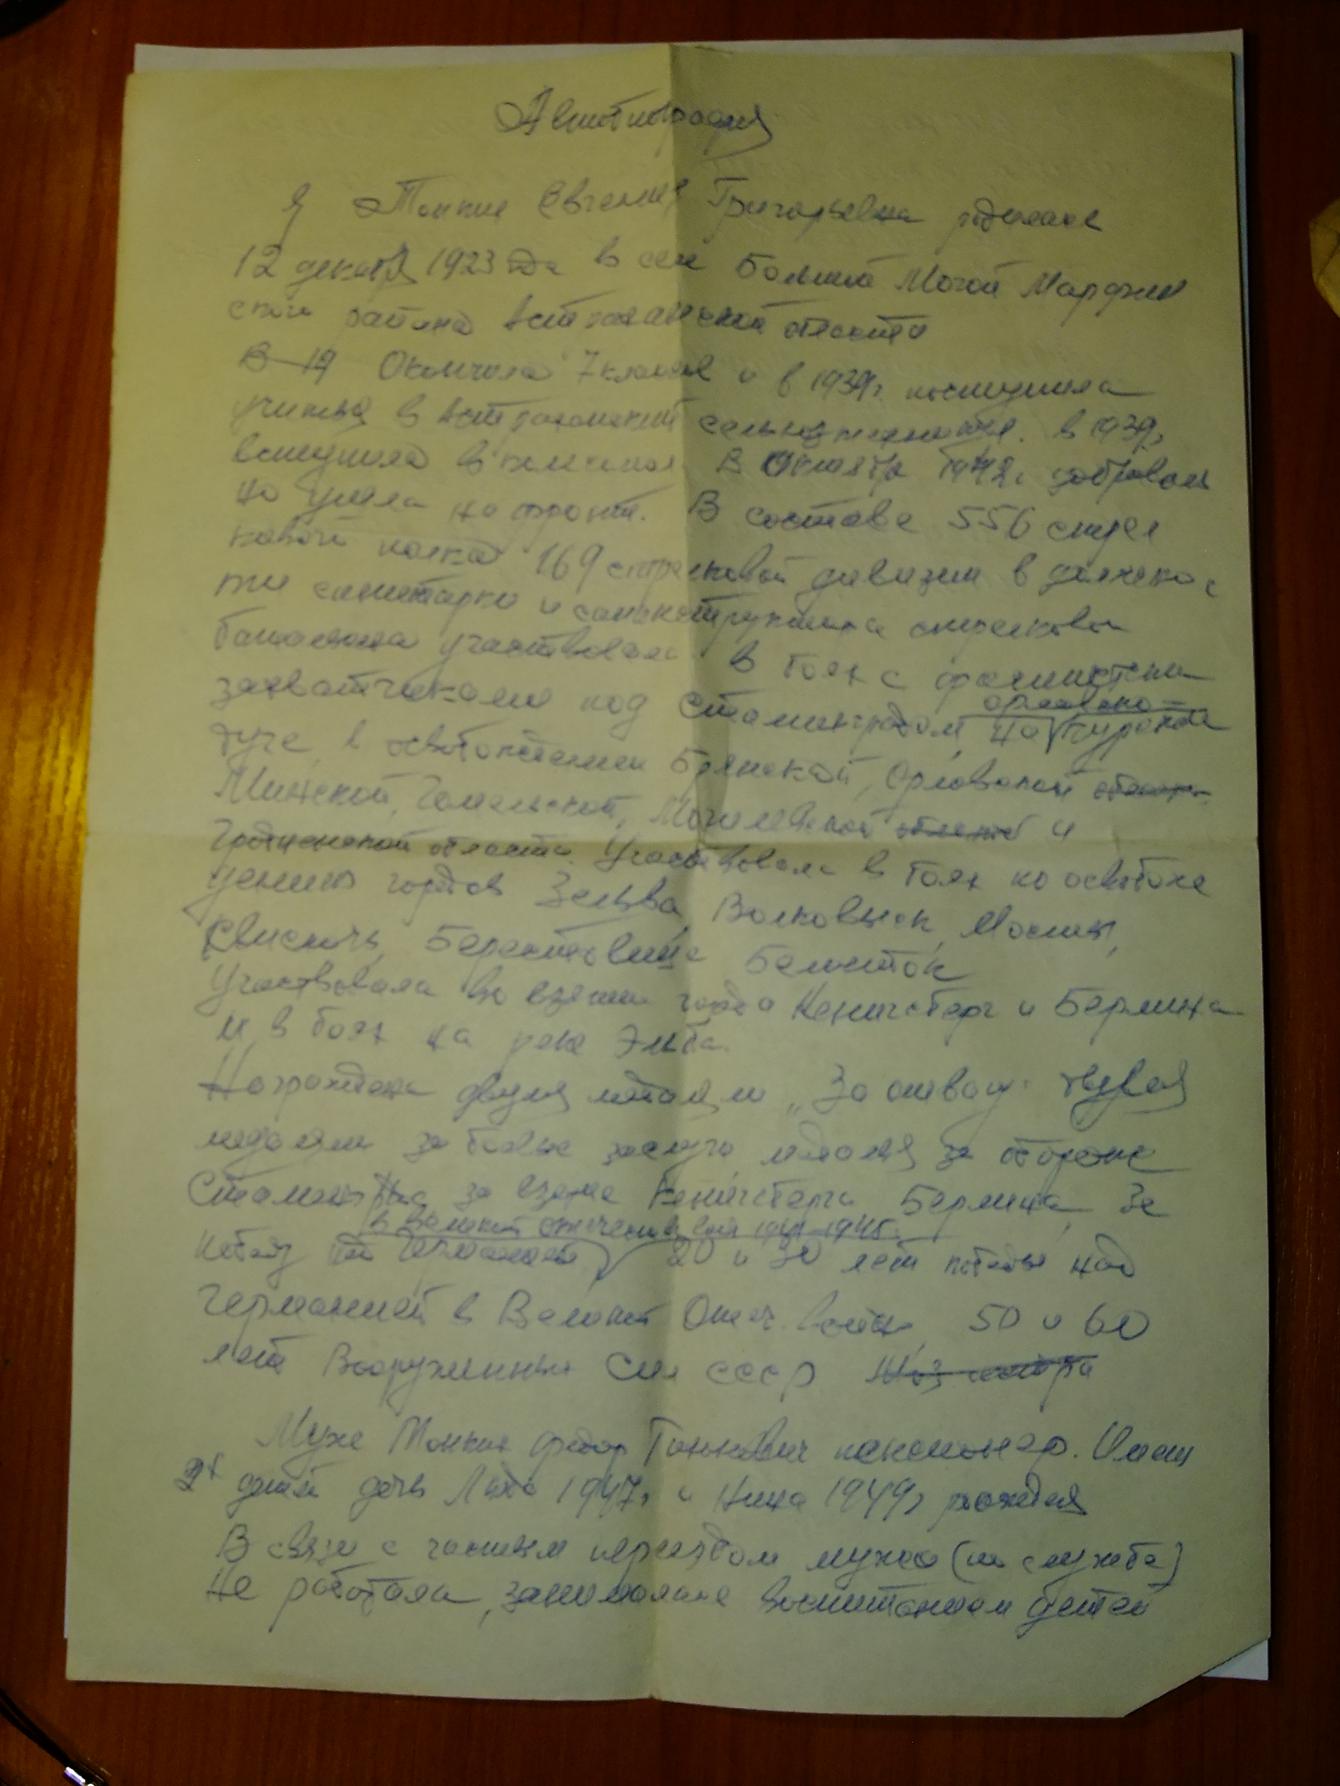 Автобиография
Я Тонких Евгения Григорьевна родилась
12 декабря 1923 в селе Большой Могой Марфин
ского района Астраханской области
В 19 Окончила 7 классов и в 1939г. поступила
учиться в Астраханский в 1939г.
вступила в комсомол. В Октябре 1942г. доброволь
но ушла на фронт. В составе 556 стрел
кового полка 169 стрелковой дивизии в должнос
ти санитарки и санинструктора стрелкового
батальона участвовала в боях с фашистскими
захватчиками под Сталинградом, на орловско-курской
дуге, в освобождении Брянской, Орловской
Минской, Гомельской, Могилевской и
Гродненской области. Участвовала в боях по освобож
дению городов Зельва, Волковыск, Мосты,
Свислочь, Берестовица Белосток
Участвовала во взятии города Кенигсберг и Берлина
и в боях на реке Эльба.
Награждена двумя медалями "За отвагу" двумя
медалями за боевые заслуги медалями за оборону
Сталинграда за взятие Кенигсберга Берлина, За
победу над Германией в Великой отечественной войне 1941-1945 20 и 30 лет победы над
Германией в Великой Отеч. войне 50 и 60
лет Вооруженных Сил СССР
Муж Тонких Федор пенсионер. Имеем
2х детей дочь Лида 1947г. и Нина 1949г. рождения
В связи с частым переездом мужа (по службе)
не работала, занималась воспитанием детей